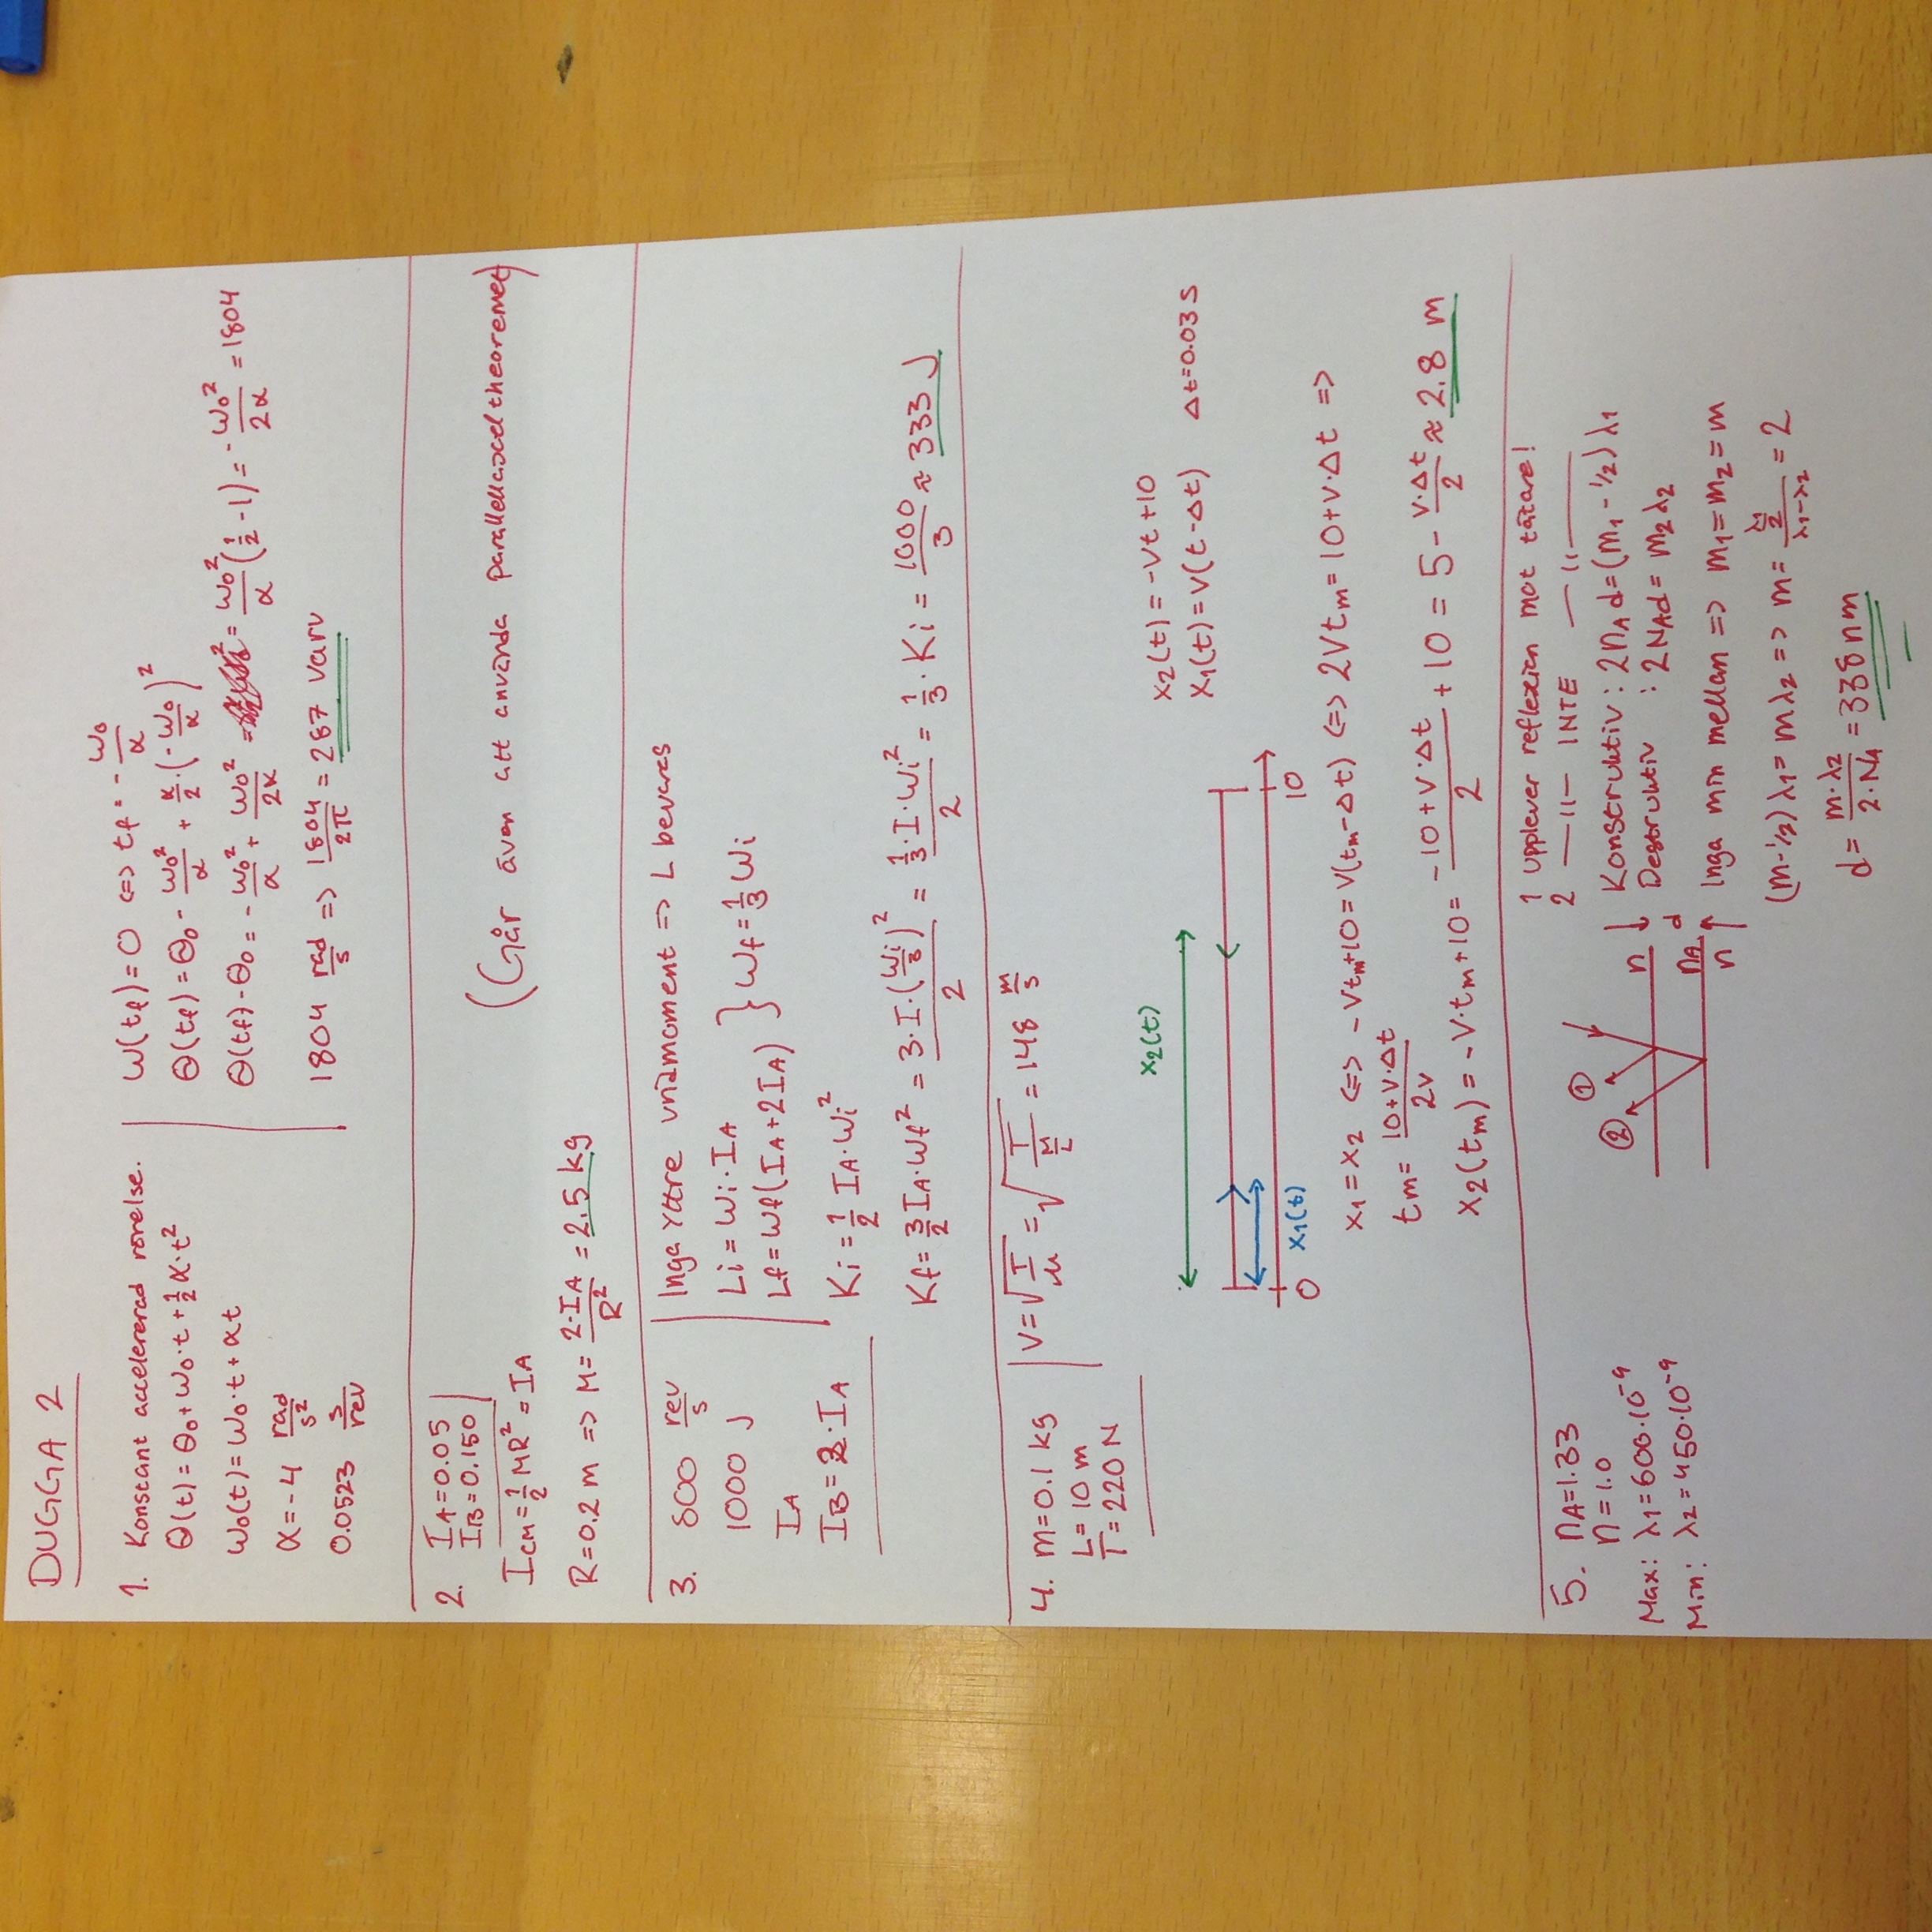 DUGGA 2
1. Konstant accelererad rörelse.
Θ(t) = Θ₀ + ω₀·t + ½ α·t²
ω₀(t) = ω₀·t + αt
α = -4 rad/s²
0.0523 s/rev
ω(tf) = 0 <=> tf = - ω₀/α
Θ(tf) = Θ₀ - ω₀²/α + α/2·(-ω₀/α)²
Θ(tf) - Θ₀ = - ω₀²/α + ω₀²/2α = = ω₀²/α (½ - 1) = -ω₀²/2α = 1804
1804 rad/s => 1804/2π = 287 varv
2. IA = 0.05
IB = 0.150
ICM = ½ MR² = IA
R = 0.2 m => M = 2·IA/R² = 2.5 kg
(Går även att använda parallellaxeltheoremet)
3. 800 rev/s
1000 J
IA
IB = 2·IA
Inga yttre vridmoment => L bevaras
Li = ωi·IA
Lf = ωf(IA + 2IA) } ωf = ⅓ ωi
Ki = ½ IA·ωi²
Kf = 3/2 IA·ωf² = 3·I·(ωi/3)²/2 = ⅓·I·ωi²/2 = ⅓·Ki = 1000/3 ≈ 333 J
4. m = 0.1 kg
L = 10 m
T = 220 N
V = √(T/μ) = √(T/(M/L)) = 148 m/s
x₂(t)
x₁(t)
0
10
x₂(t) = -Vt + 10
x₁(t) = V(t - Δt) Δt = 0.03 s
x₁ = x₂ <=> -Vtm + 10 = V(tm - Δt) <=> 2Vtm = 10 + V·Δt =>
tm = (10 + V·Δt)/2V
x₂(tm) = -V·tm + 10 = (-10 + V·Δt)/2 + 10 = 5 - V·Δt/2 ≈ 2.8 m
5. nA = 1.33
n = 1.0
Max: λ₁ = 600·10⁻⁹
Min: λ₂ = 450·10⁻⁹
①
②
n
d
nA
n
1 upplever reflexion mot tätare!
2 —"— INTE —"—
Konstruktiv: 2nA d = (m₁ - ½) λ₁
Destruktiv : 2NAd = m₂ λ₂
Inga min mellan => m₁ = m₂ = m
(m - ½) λ₁ = m λ₂ => m = (λ₁/2)/(λ₁ - λ₂) = 2
d = m·λ₂/2·NA = 338 nm